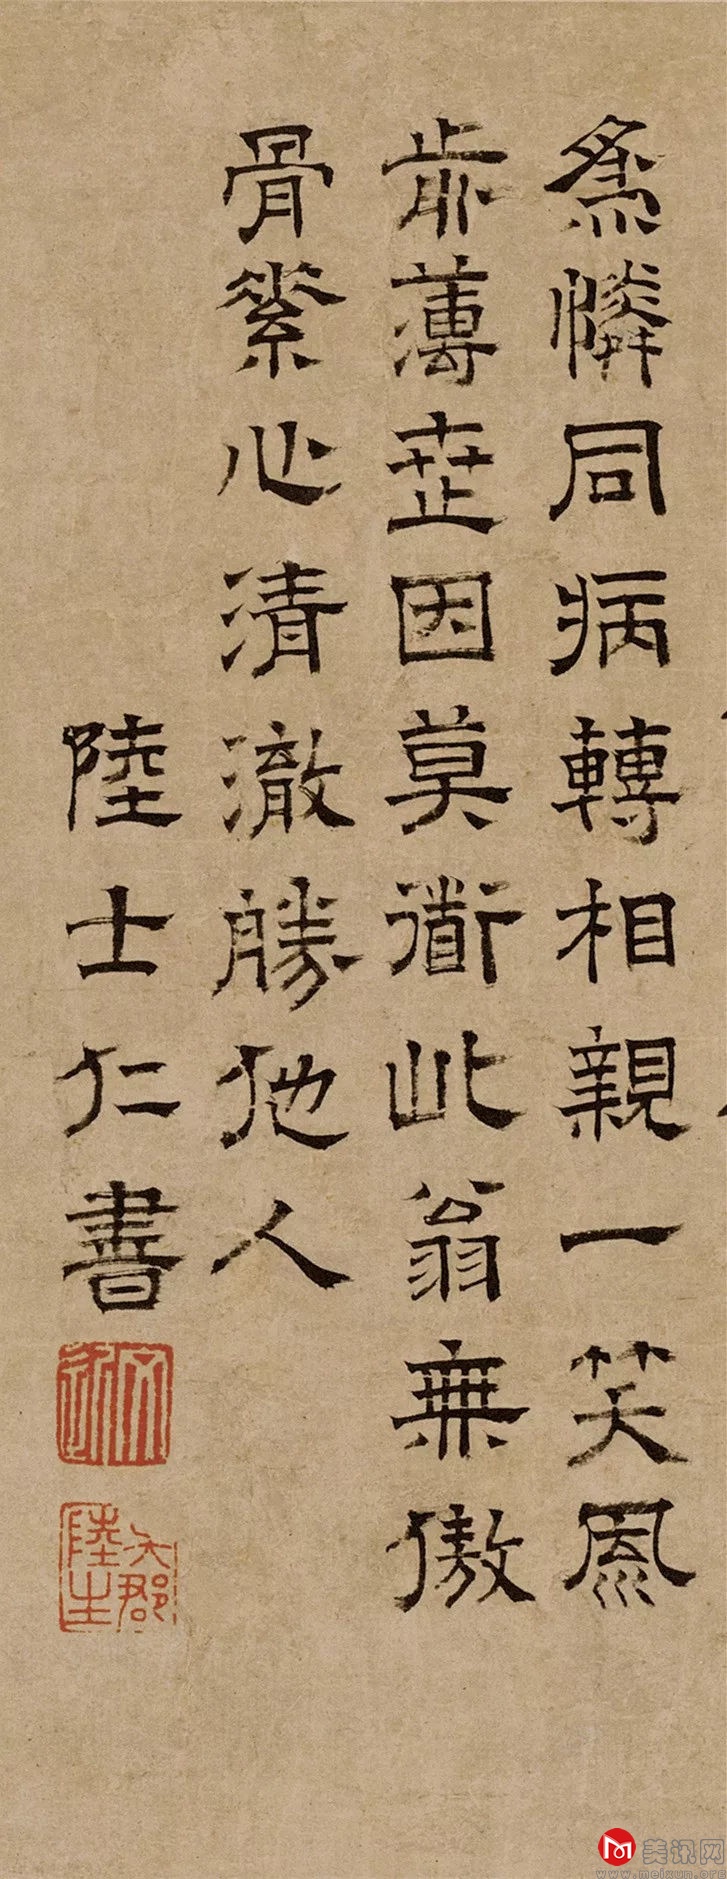 為憐同病轉相親一笑風
前薄因莫衜此翁無傲
骨心清澈勝他人
陸士仁書
吳郡陸生
美讯网
www.meixun.org